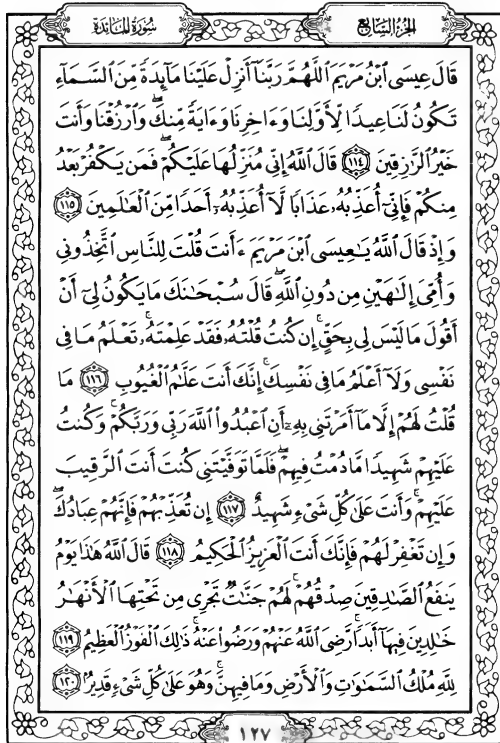 سُورَةُ المَائدة
الجُزءُ السَّابِع
قَالَ عِيسَى ٱبْنُ مَرْيَمَ ٱللَّهُمَّ رَبَّنَآ أَنزِلْ عَلَيْنَا مَآئِدَةً مِّنَ ٱلسَّمَآءِ
تَكُونُ لَنَا عِيدًا لِّأَوَّلِنَا وَءَاخِرِنَا وَءَايَةً مِّنكَۖ وَٱرْزُقْنَا وَأَنتَ
خَيْرُ ٱلرَّٰزِقِينَ ١١٤ قَالَ ٱللَّهُ إِنِّي مُنَزِّلُهَا عَلَيْكُمْۖ فَمَن يَكْفُرْ بَعْدُ
مِنكُمْ فَإِنِّيٓ أُعَذِّبُهُۥ عَذَابًا لَّآ أُعَذِّبُهُۥٓ أَحَدًا مِّنَ ٱلْعَٰلَمِينَ ١١٥
وَإِذْ قَالَ ٱللَّهُ يَٰعِيسَى ٱبْنَ مَرْيَمَ ءَأَنتَ قُلْتَ لِلنَّاسِ ٱتَّخِذُونِي
وَأُمِّيَ إِلَٰهَيْنِ مِن دُونِ ٱللَّهِۖ قَالَ سُبْحَٰنَكَ مَا يَكُونُ لِيٓ أَنْ
أَقُولَ مَا لَيْسَ لِي بِحَقٍّۚ إِن كُنتُ قُلْتُهُۥ فَقَدْ عَلِمْتَهُۥۚ تَعْلَمُ مَا فِي
نَفْسِي وَلَآ أَعْلَمُ مَا فِي نَفْسِكَۚ إِنَّكَ أَنتَ عَلَّٰمُ ٱلْغُيُوبِ ١١٦ مَا
قُلْتُ لَهُمْ إِلَّا مَآ أَمَرْتَنِي بِهِۦٓ أَنِ ٱعْبُدُوا۟ ٱللَّهَ رَبِّي وَرَبَّكُمْۚ وَكُنتُ
عَلَيْهِمْ شَهِيدًا مَّا دُمْتُ فِيهِمْۖ فَلَمَّا تَوَفَّيْتَنِي كُنتَ أَنتَ ٱلرَّقِيبَ
عَلَيْهِمْۚ وَأَنتَ عَلَىٰ كُلِّ شَيْءٍ شَهِيدٌ ١١٧ إِن تُعَذِّبْهُمْ فَإِنَّهُمْ عِبَادُكَۖ
وَإِن تَغْفِرْ لَهُمْ فَإِنَّكَ أَنتَ ٱلْعَزِيزُ ٱلْحَكِيمُ ١١٨ قَالَ ٱللَّهُ هَٰذَا يَوْمُ
يَنفَعُ ٱلصَّٰدِقِينَ صِدْقُهُمْۚ لَهُمْ جَنَّٰتٌ تَجْرِي مِن تَحْتِهَا ٱلْأَنْهَٰرُ
خَٰلِدِينَ فِيهَآ أَبَدًاۚ رَّضِيَ ٱللَّهُ عَنْهُمْ وَرَضُوا۟ عَنْهُۚ ذَٰلِكَ ٱلْفَوْزُ ٱلْعَظِيمُ ١١٩
لِلَّهِ مُلْكُ ٱلسَّمَٰوَٰتِ وَٱلْأَرْضِ وَمَا فِيهِنَّۚ وَهُوَ عَلَىٰ كُلِّ شَيْءٍ قَدِيرٌۢ ١٢٠
١٢٧